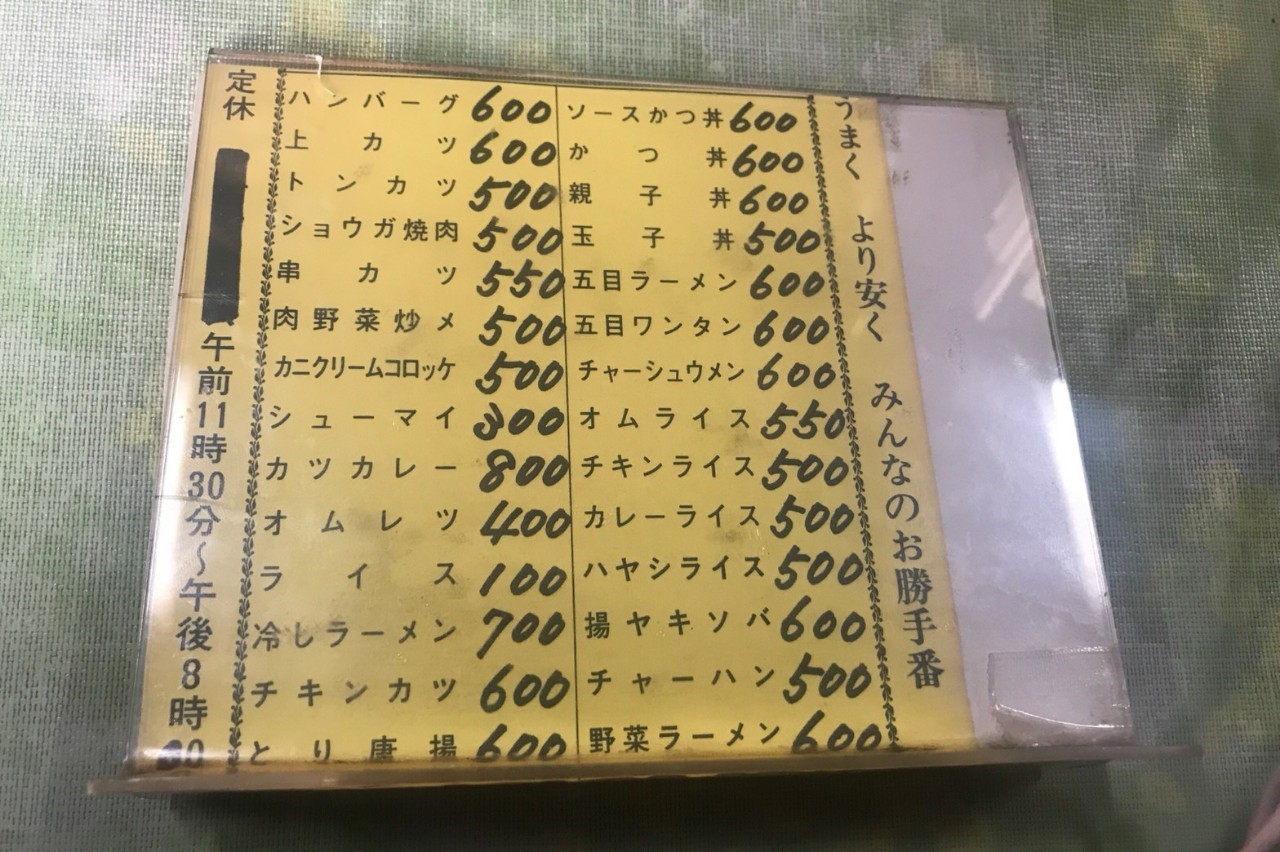 うまく より安く みんなのお勝手番
ソースかつ丼 600
かつ丼 600
親子丼 600
玉子丼 500
五目ラーメン 600
五目ワンタン 600
チャーシュウメン 600
オムライス 550
チキンライス 500
カレーライス 500
ハヤシライス 500
揚ヤキソバ 600
チャーハン 500
野菜ラーメン 600
ハンバーグ 600
上カツ 600
トンカツ 500
ショウガ焼肉 500
串カツ 550
肉野菜炒メ 500
カニクリームコロッケ 500
シューマイ 300
カツカレー 800
オムレツ 400
ライス 100
冷しラーメン 700
チキンカツ 600
とり唐揚 600
定休 午前11時30分～午後8時